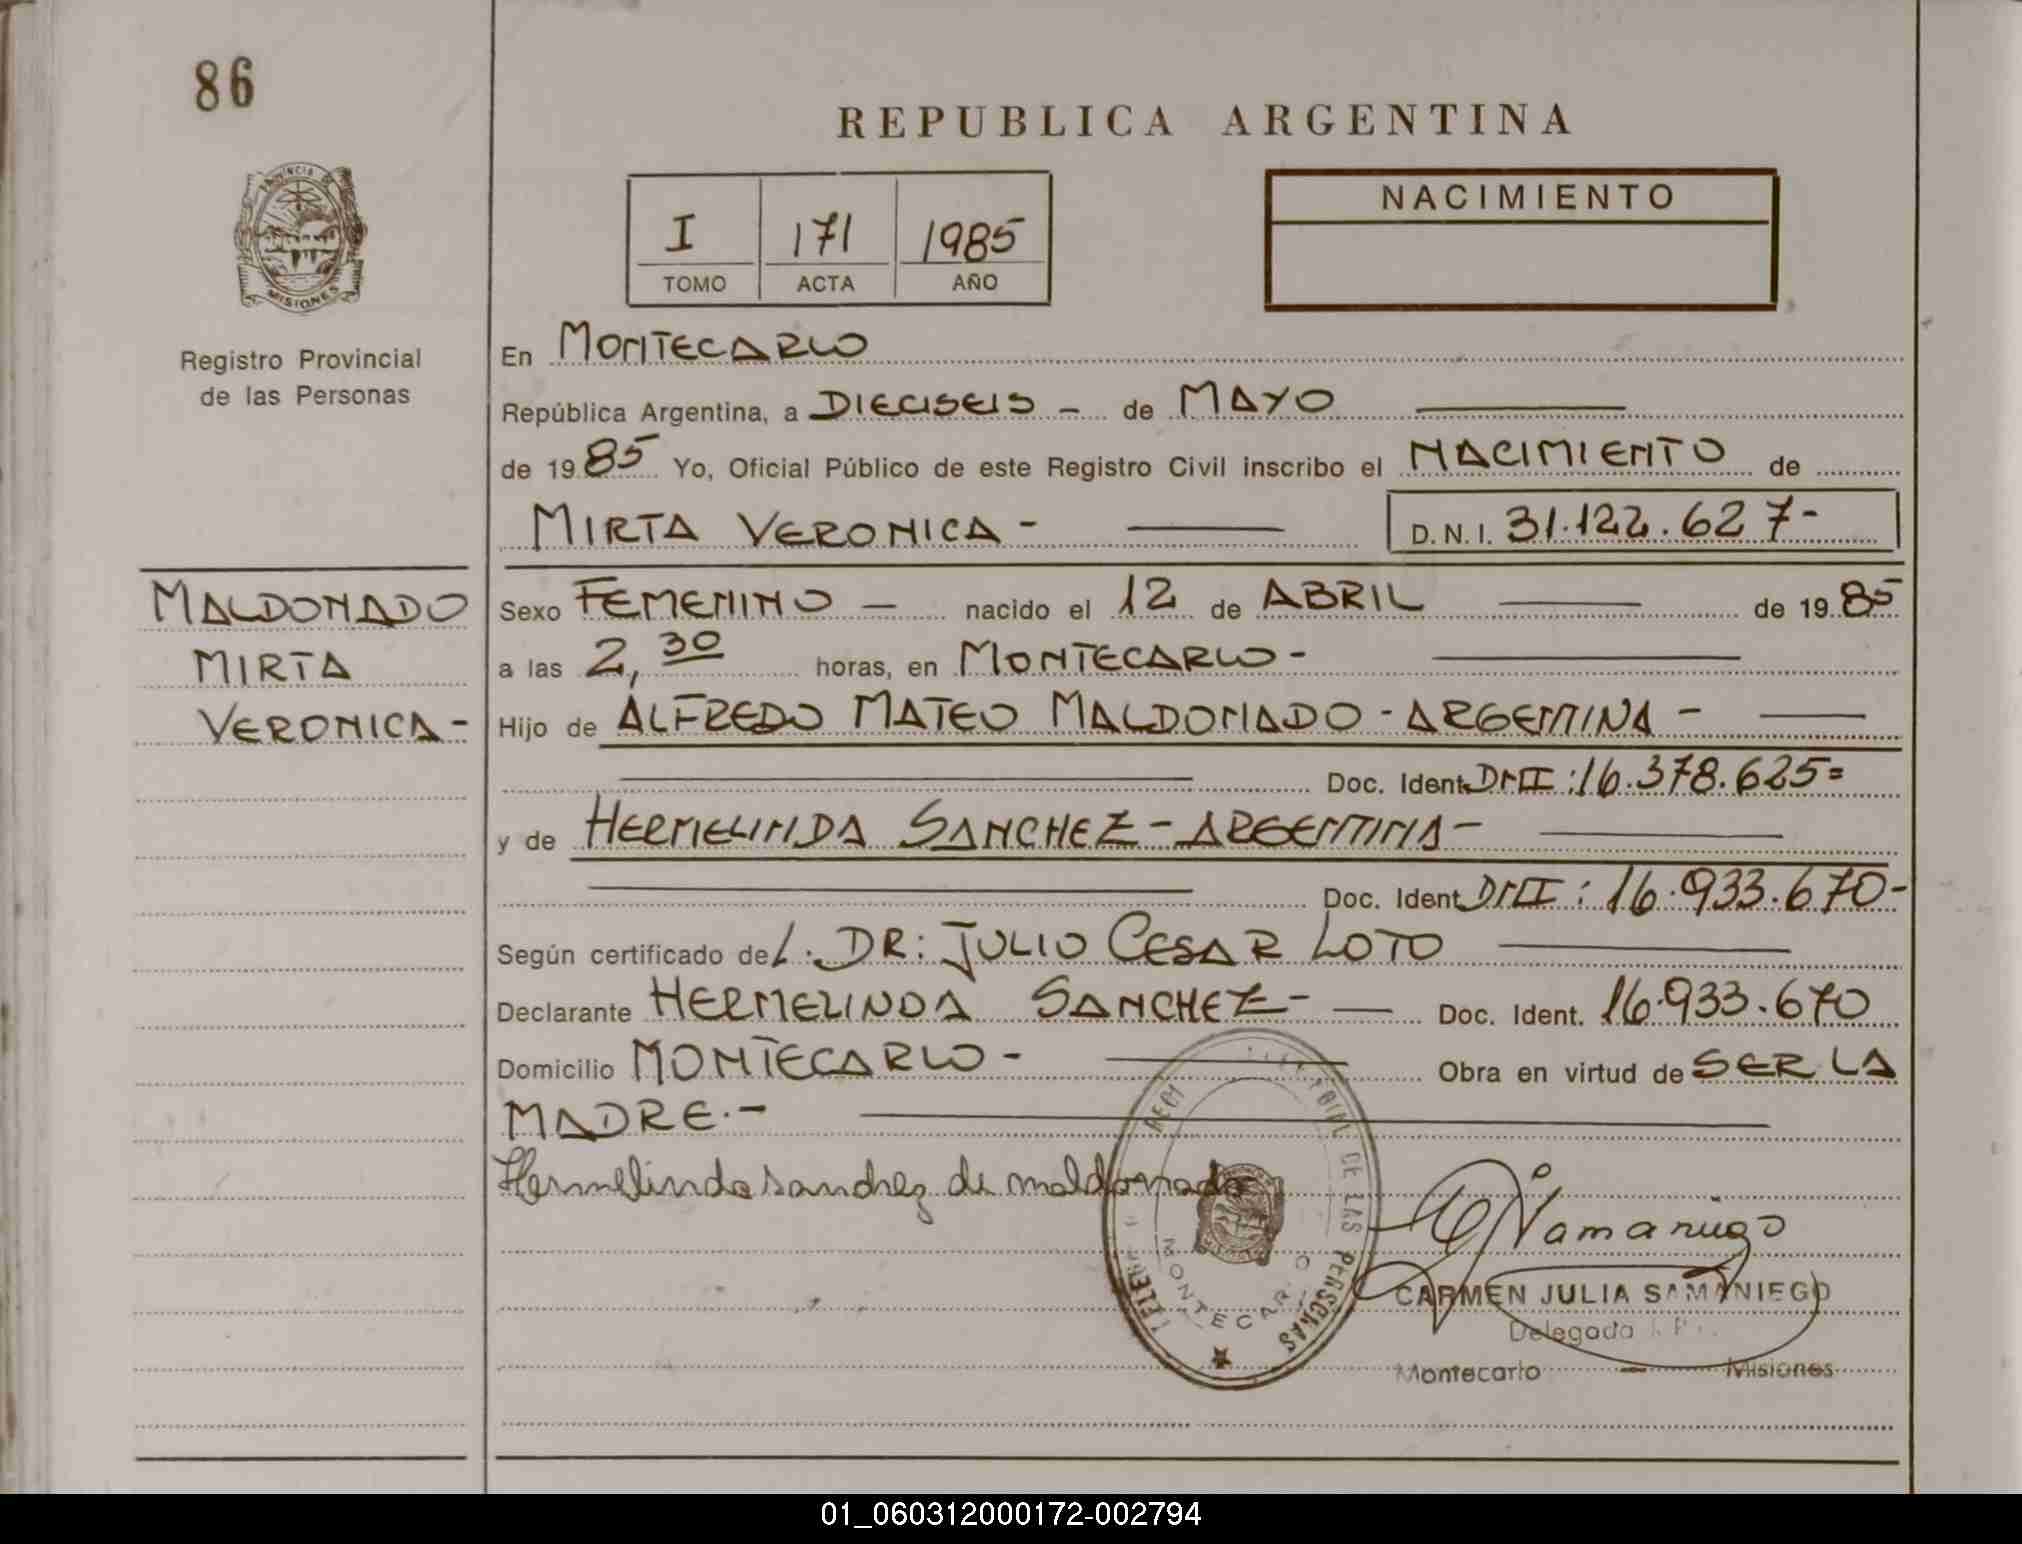 86
REPUBLICA ARGENTINA
PROVINCIA DE
MISIONES
I 171 1985
TOMO ACTA AÑO
NACIMIENTO
Registro Provincial
de las Personas
En MONTECARLO
República Argentina, a DIECISEIS - de MAYO
de 19 85 Yo, Oficial Público de este Registro Civil inscribo el NACIMIENTO de
MIRTA VERONICA - D. N. I. 31.122.627-
MALDONADO
MIRTA
VERONICA -
Sexo FEMENINO - nacido el 12 de ABRIL de 19 85
a las 2,30 horas, en MONTECARLO -
Hijo de ALFREDO MATEO MALDONADO - ARGENTINA -
Doc. Ident. DNI: 16.378.625=
y de HERMELINDA SANCHEZ - ARGENTINA -
Doc. Ident. DNI: 16.933.670-
Según certificado de L. DR: JULIO CESAR LOTO
Declarante HERMELINDA SANCHEZ - Doc. Ident. 16.933.670
Domicilio MONTECARLO - Obra en virtud de SER LA
MADRE.-
Hermelinda sanchez de maldonado
DE LAS PERSONAS
MONTECARLO
CARMEN JULIA SAMANIEGO
Delegada
Montecarlo - Misiones
01_060312000172-002794